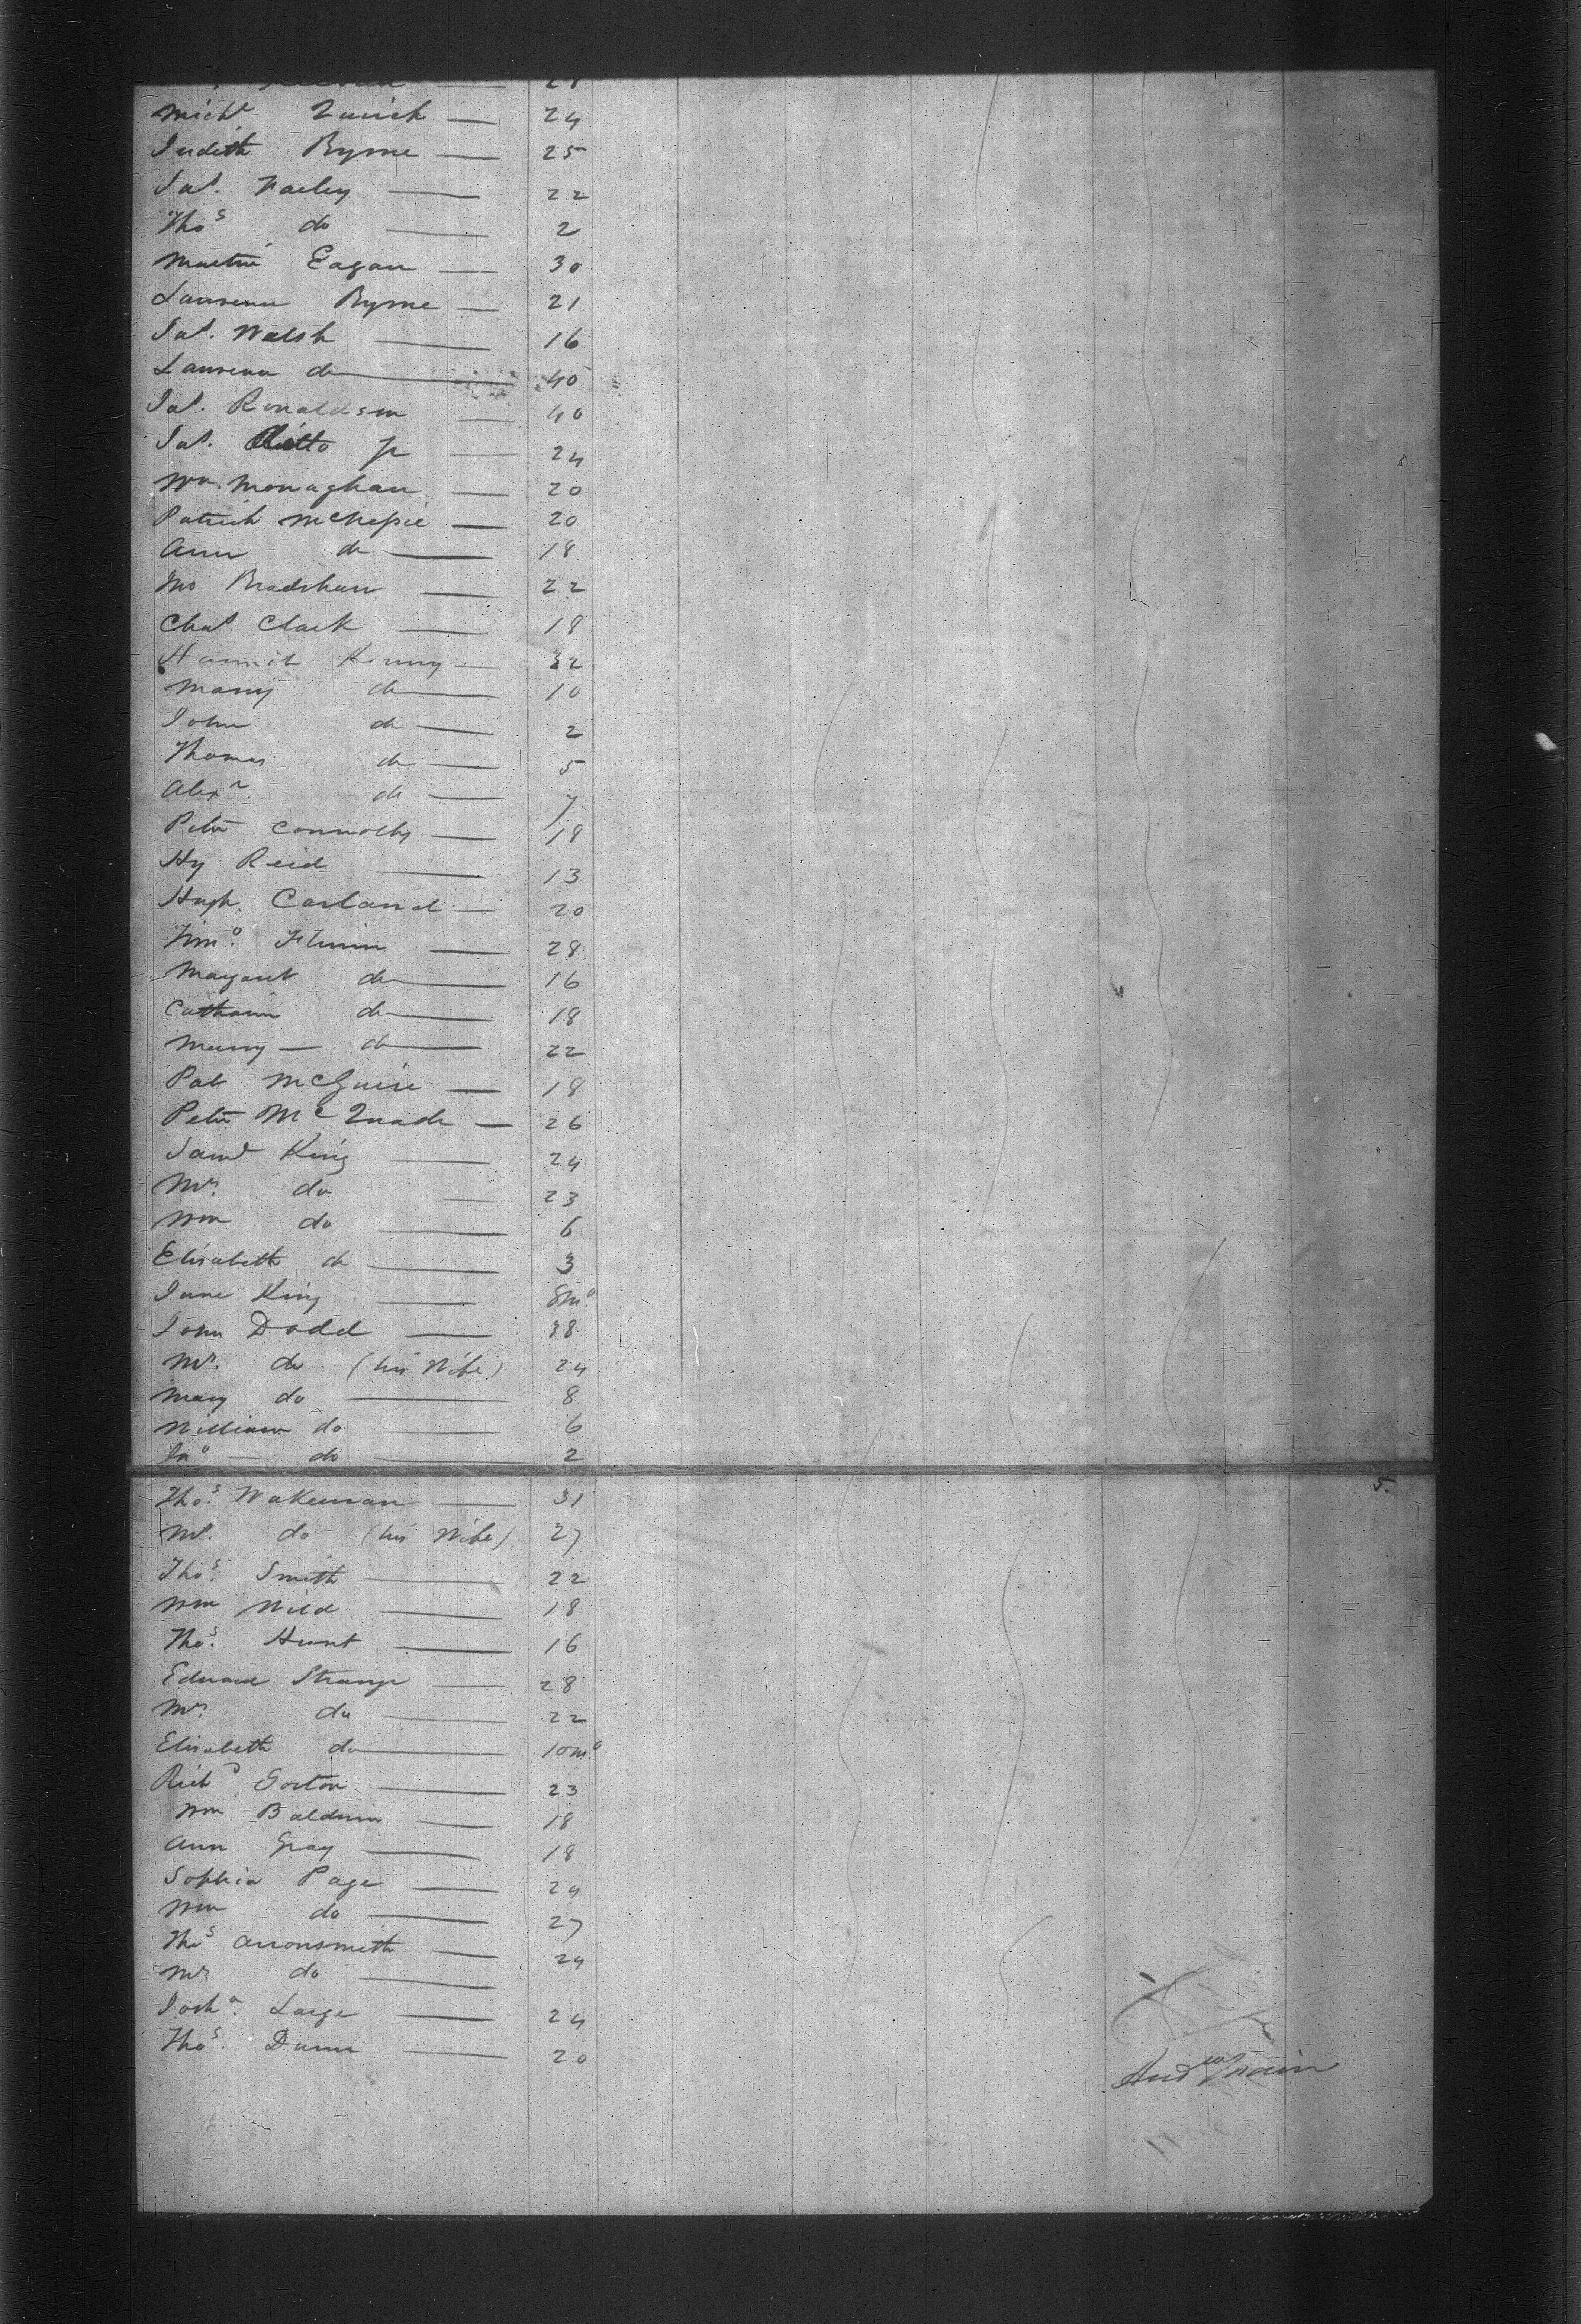 Michl Quick — 24
Judith Byrne — 25
Jas. Farley — 22
Thos do — 2
Martin Eagan — 30
Laurence Byrne — 21
Jas. Walsh — 16
Laurence do — 40
Jas. Ronaldson — 40
Jas. Ditto Jr — 24
Wm. Monaghan — 20
Patrick — 20
Ann do — 18
Jno Bradshaw — 22
Chas Clark — 18
Hannah Kenny — 32
Mary do — 10
John do — 2
Thomas do — 5
Alexr. do — 7
Peter Connolly — 18
Hy Reid — 13
Hugh Carland — 20
Timo. — 28
Margaret do — 16
Catharin do — 18
Marry — do — 22
Pat McGuire — 18
Peter McQuade — 26
Saml King — 24
Mrs. do — 23
Wm do — 6
Elisabeth do — 3
Jane King — 8mo.
John Dodd — 38
Mrs. do (his Wife) 24
Mary do — 8
William do — 6
Jno — do — 2
Thos. Wakeman — 31
5.
Mrs. do (his Wife) 27
Thos. Smith — 22
Wm Wild — 18
Thos. Hunt — 16
Edward Strange — 28
Mrs. do — 22
Elisabeth do — 10mo.
Richd Gorton — 23
Wm Baldwin — 18
Ann Gray — 18
Sophia Page — 24
Wm do — 27
Thos Arronsmith — 24
Mrs do —
Josha. Large — 24
Thos. Dunn — 20
Andw